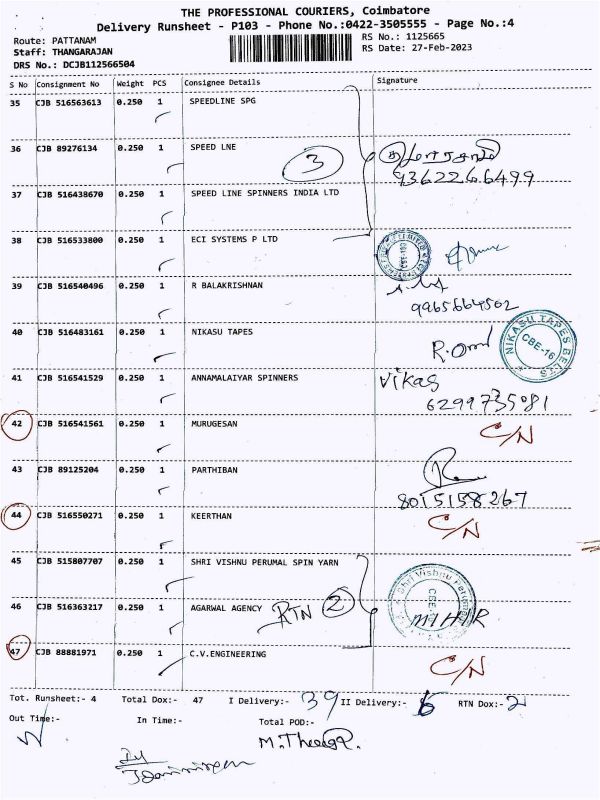 THE PROFESSIONAL COURIERS, Coimbatore
Delivery Runsheet - P103 - Phone No.:0422-3505555 - Page No.:4
Route: PATTANAM
RS No.: 1125665
Staff: THANGARAJAN
RS Date: 27-Feb-2023
DRS No.: DCJB112566504
S No Consignment No Weight PCS Consignee Details Signature
35 CJB 516563613 0.250 1 SPEEDLINE SPG
36 CJB 89276134 0.250 1 SPEED LNE 3 குமாரசாமி
9362266499
37 CJB 516438670 0.250 1 SPEED LINE SPINNERS INDIA LTD
38 CJB 516533800 0.250 1 ECI SYSTEMS P LTD
39 CJB 516540496 0.250 1 R BALAKRISHNAN
9965664502
40 CJB 516483161 0.250 1 NIKASU TAPES
NIKASU TAPES BELTS
CBE-16
41 CJB 516541529 0.250 1 ANNAMALAIYAR SPINNERS Vikas
6299735081
42 CJB 516541561 0.250 1 MURUGESAN C/N
43 CJB 89125204 0.250 1 PARTHIBAN
8015158267
44 CJB 516550271 0.250 1 KEERTHAN C/N
45 CJB 515807707 0.250 1 SHRI VISHNU PERUMAL SPIN YARN
Shri Vishnu Perumal
CBE
46 CJB 516363217 0.250 1 AGARWAL AGENCY RTN 2 MIHIR
47 CJB 88881971 0.250 1 C.V.ENGINEERING C/N
Tot. Runsheet:- 4 Total Dox:- 47 I Delivery:- 39 II Delivery:- 6 RTN Dox:- 2
Out Time:- In Time:- Total POD:-